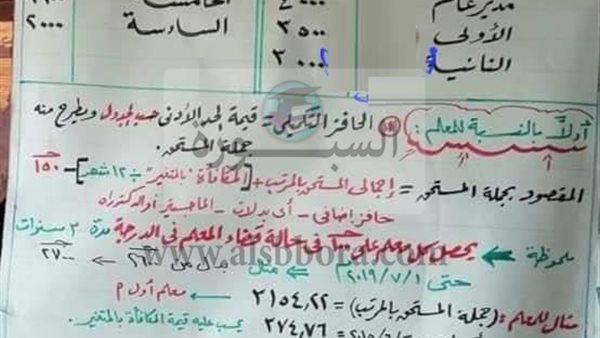 مدير عام ٤٠٠٠ الخامسة
الأولى ٣٥٠٠ السادسة ٢٠٠٠
الثانية ٣٠٠٠
أولاً بالنسبة للمعلم : الحافز التكميلى = قيمة الحد الأدنى حسب الجدول ويطرح منه
جملة المستحق .
المقصود بجملة المستحق = إجمالى المستحق بالمرتب + [المكافأة "بالمتغير" ÷ ١٢ شهر] - ١٥٠
حافز إضافى - أى بدلات - الماجستير أو الدكتوراه
ملحوظة يحصل كل معلم على ١٠٠ فى حالة قضاء المعلم فى الدرجة مدة ٣ سنوات
حتى ٢٠١٩/٧/١ مثال بدل من ٢٦٠٠ ٢٧٠٠
مثال للمعلم : (جملة المستحق بالمرتب) = ٢١٥٤,٢٢ معلم أول م
= ٢٧٤,٧٦ يحسب عليه قيمة المكافأة بالمتغير .
السبورة
www.alsbbora.com